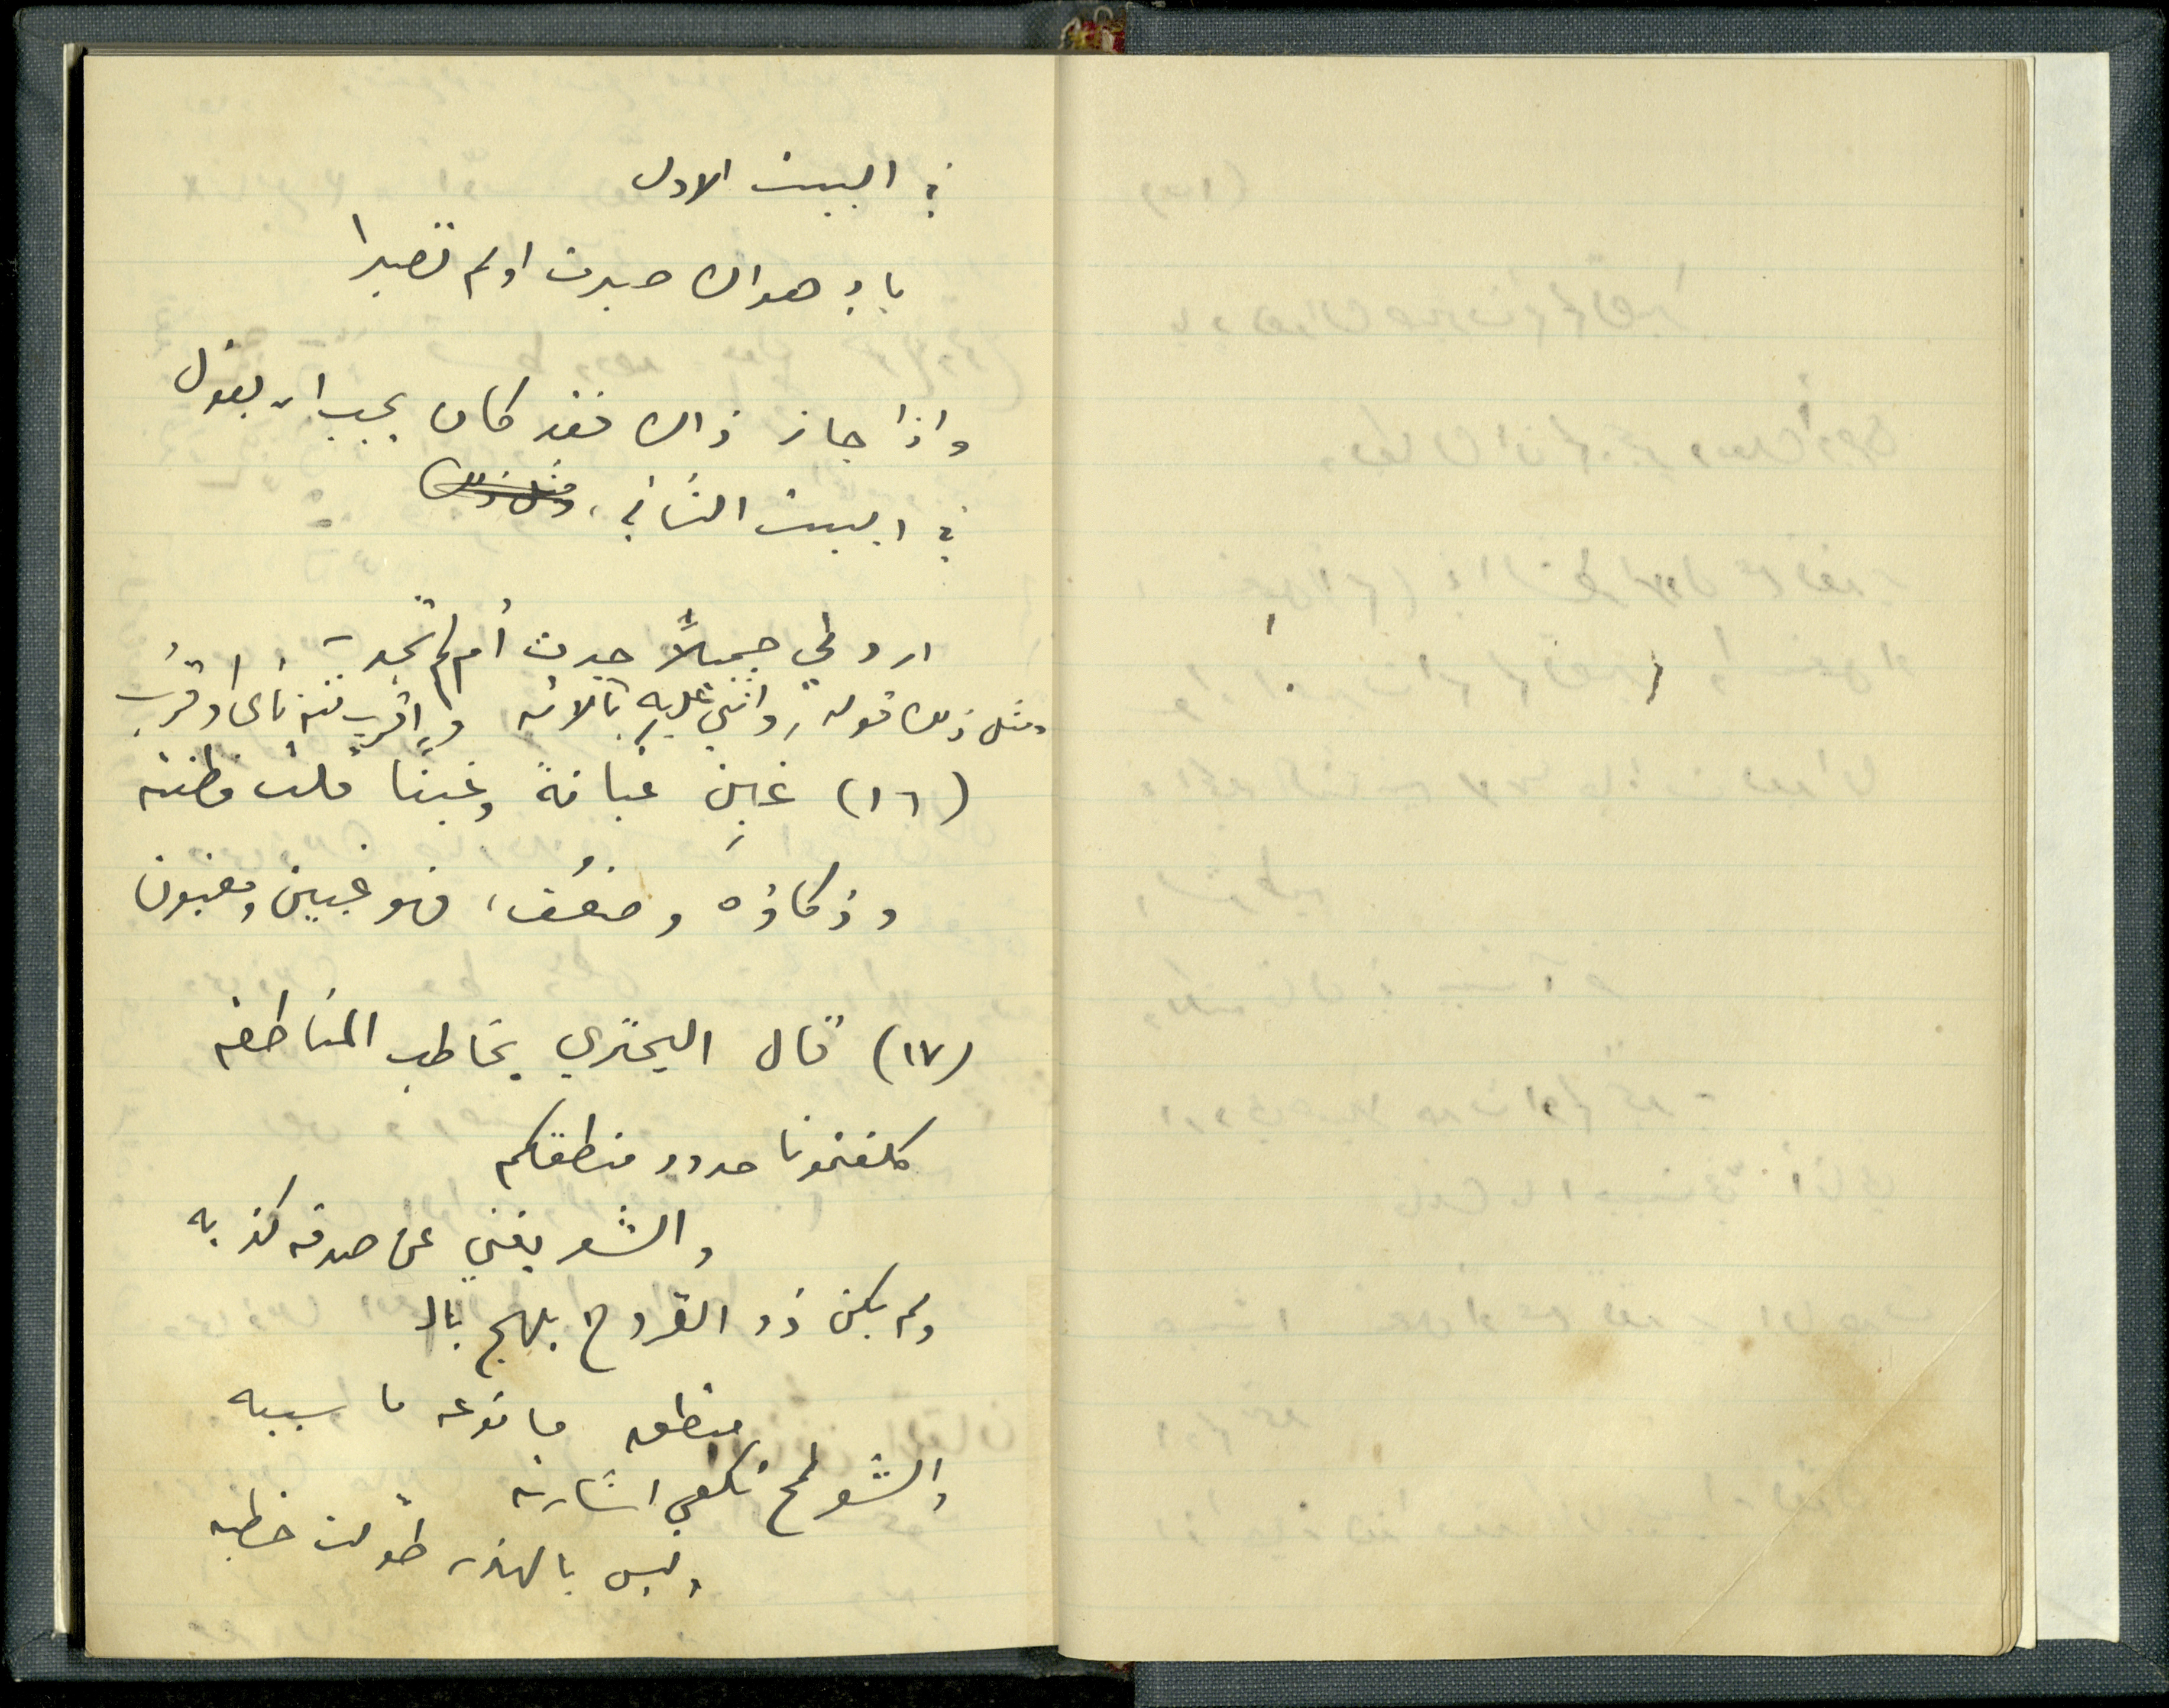 في البيت الاول
باد هواك صبرت او لم تصبرا
واذا جاز ذاك فقد كان يجب ان يقول
في البيت الثاني ، ومثل ذلك
اردد لي جميلاً جدت أم لم تجد به
ومثل ذلك قوله : واثني عليه بآلائه واقرب منه نأى او قرب
(١٦) غبِن غبانةً وغبنا قلت فطنته
وذكاؤه وضعُف ، فهو غبين ومغبون
(١٧) قال البحتري يخاطب المناطقه
كلفتمونا حدود منطقكم
والشعر يغني عن صدقه كذبه
ولم يكن ذو القروح يلهج بالـ
منطق ما نوعه ما سببه
والشعر لمح تكفي اشارته
وليس بالهذر طوّلت خطبه